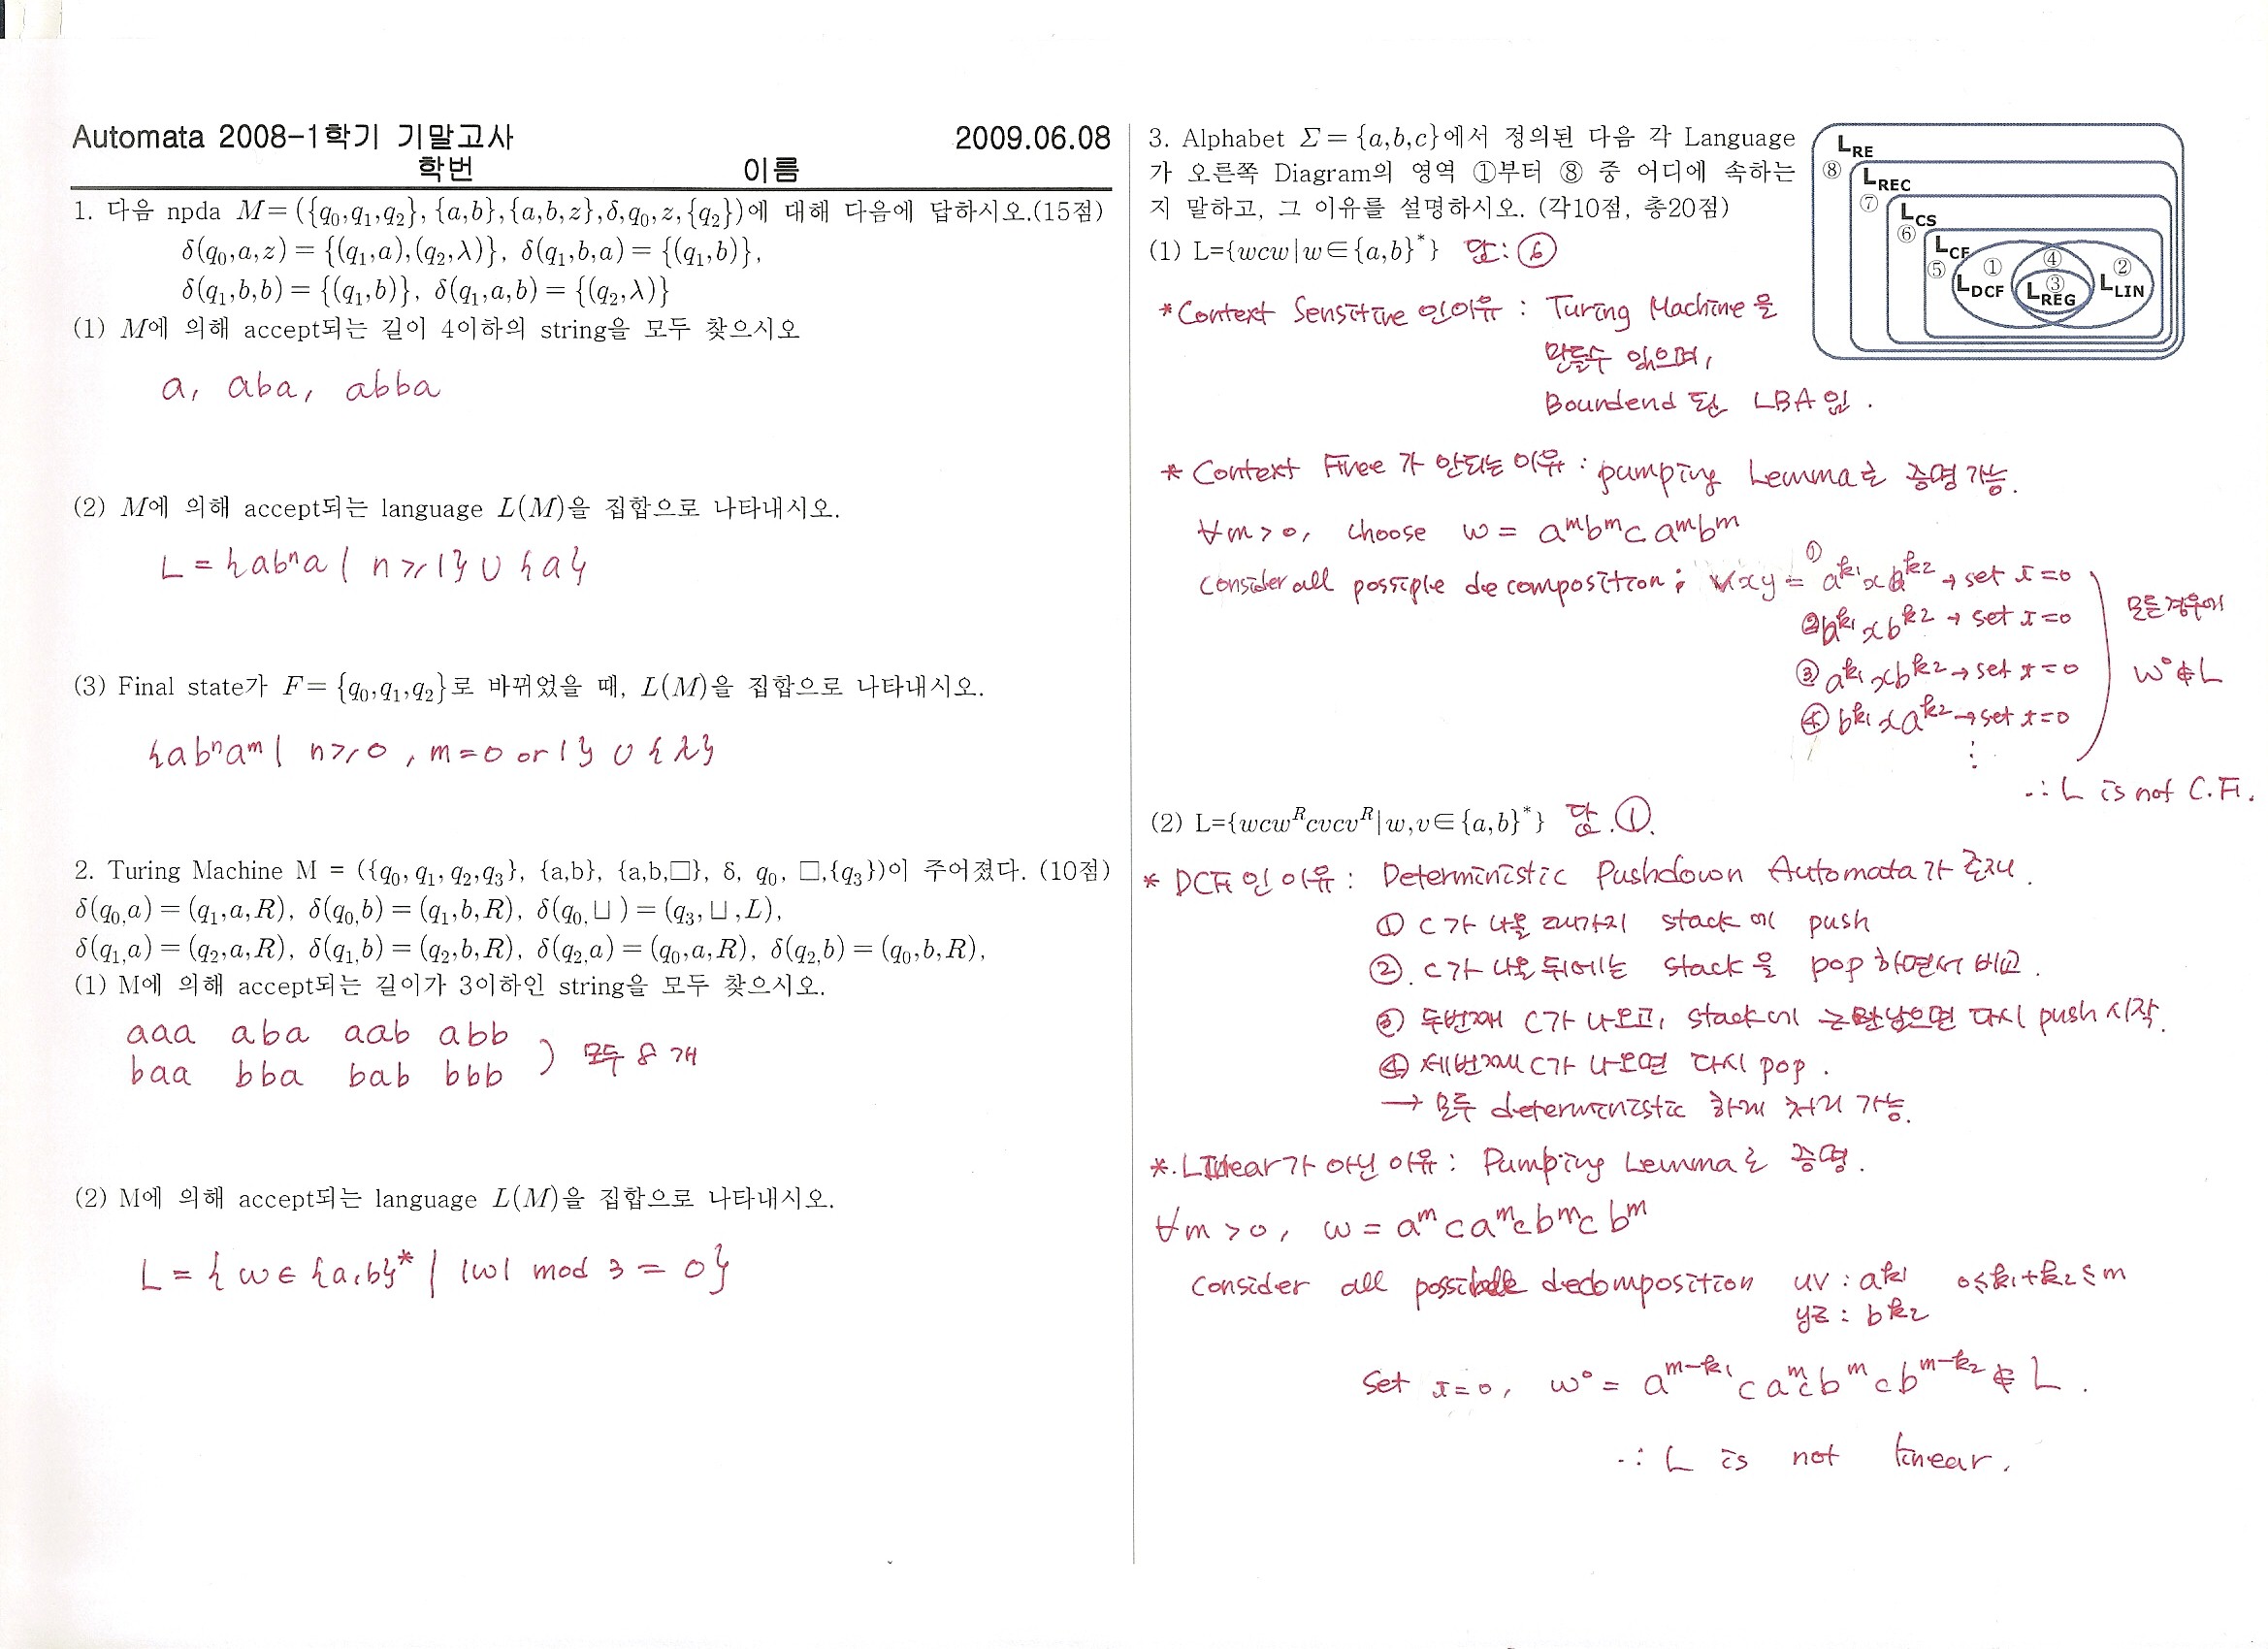 Automata 2008-1학기 기말고사 2009.06.08
학번 이름
1. 다음 npda M=({q₀,q₁,q₂},{a,b},{a,b,z},δ,q₀,z,{q₂})에 대해 다음에 답하시오.(15점)
δ(q₀,a,z)={(q₁,a),(q₂,λ)}, δ(q₁,b,a)={(q₁,b)},
δ(q₁,b,b)={(q₁,b)}, δ(q₁,a,b)={(q₂,λ)}
(1) M에 의해 accept되는 길이 4이하의 string을 모두 찾으시오
a, aba, abba
(2) M에 의해 accept되는 language L(M)을 집합으로 나타내시오.
L = {abⁿa | n≥1} ∪ {a}
(3) Final state가 F={q₀,q₁,q₂}로 바뀌었을 때, L(M)을 집합으로 나타내시오.
{abⁿaᵐ | n≥0, m=0 or 1} ∪ {λ}
2. Turing Machine M = ({q₀, q₁, q₂,q₃}, {a,b}, {a,b,□}, δ, q₀, □,{q₃})이 주어졌다. (10점)
δ(q₀,a)=(q₁,a,R), δ(q₀,b)=(q₁,b,R), δ(q₀,⊔)=(q₃,⊔,L),
δ(q₁,a)=(q₂,a,R), δ(q₁,b)=(q₂,b,R), δ(q₂,a)=(q₀,a,R), δ(q₂,b)=(q₀,b,R),
(1) M에 의해 accept되는 길이가 3이하인 string을 모두 찾으시오.
aaa aba aab abb
baa bba bab bbb ) 모두 8개
(2) M에 의해 accept되는 language L(M)을 집합으로 나타내시오.
L = {w∈{a,b}* | |w| mod 3 = 0}
3. Alphabet Σ={a,b,c}에서 정의된 다음 각 Language
가 오른쪽 Diagram의 영역 ①부터 ⑧ 중 어디에 속하는
지 말하고, 그 이유를 설명하시오. (각10점, 총20점)
L_RE
⑧ L_REC
⑦ L_CS
⑥ L_CF
⑤ ① ④ ②
L_DCF ③ L_REG L_LIN
(1) L={wcw|w∈{a,b}*} 답: ⑥
*Context Sensitive 인이유 : Turing Machine을
만들수 있으며,
Boundend 된 LBA임.
* Context Free 가 안되는 이유 : pumping Lemma로 증명가능.
∀m>0, choose w = aᵐbᵐcaᵐbᵐ
Consider all possiple decomposition; vxy = ① aᵏ¹xaᵏ² → set i=0
② bᵏ¹xbᵏ² → set i=0
③ aᵏ¹xbᵏ² → set i=0
④ bᵏ¹xaᵏ² → set i=0
⋮
모든경우에
w⁰∉L
∴ L is not C.F.
(2) L={wcwᴿcvcvᴿ|w,v∈{a,b}*} 답. ①.
* DCF인 이유 : Deterministic Pushdown Automata가 존재.
① C가 나올 때까지 stack에 push
②. C가 나온뒤에는 stack을 pop하면서 비교.
③ 두번째 C가 나오고, stack에 z만남으면 다시 push 시작.
④ 세번째 C가 나오면 다시 pop.
→ 모두 deterministic 하게 처리 가능.
*. Linear가 아닌 이유 : Pumping Lemma로 증명.
∀m>0, w = aᵐcaᵐcbᵐcbᵐ
consider all possible decomposition uv : aᵏ¹ 0≤k₁+k₂≤m
yz : bᵏ²
Set i=0, w⁰ = aᵐ⁻ᵏ¹caᵐcbᵐcbᵐ⁻ᵏ² ∉ L.
∴ L is not linear.